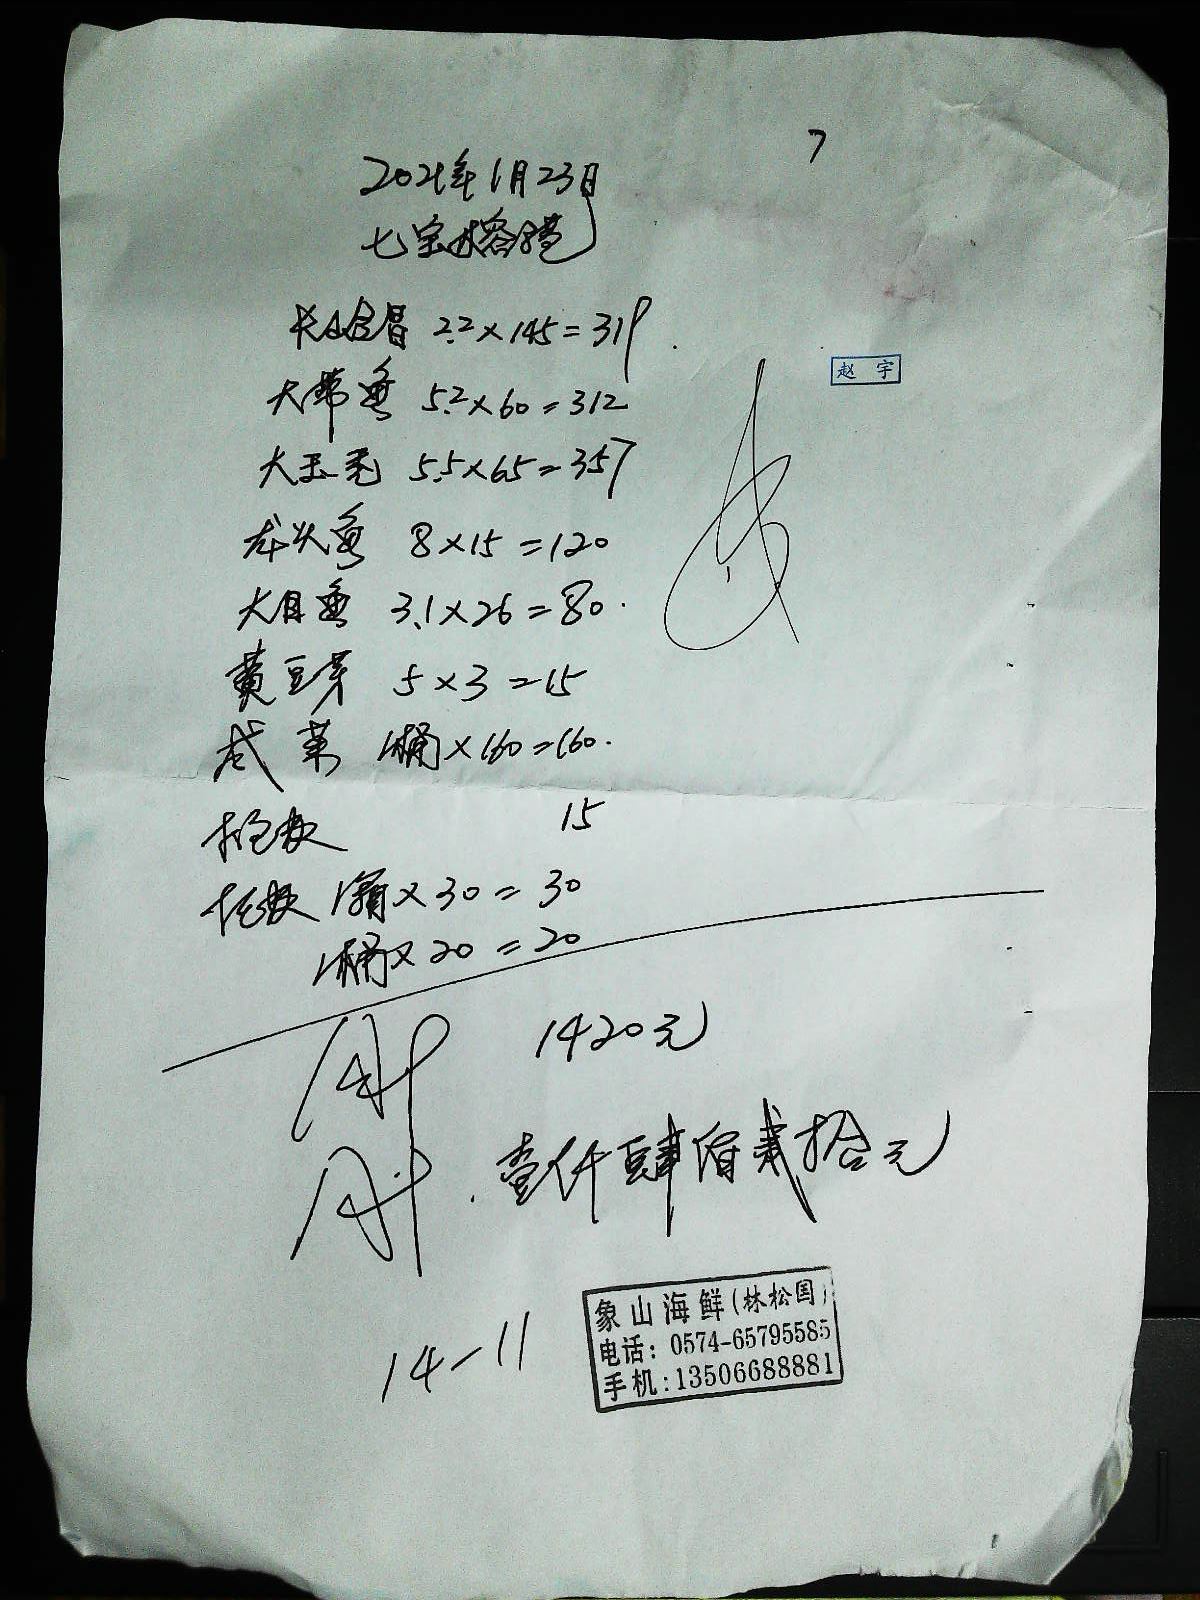 7
2021年1月23日
七宝水
2.2×145=319
赵宇
大带鱼 5.2×60=312
大玉秃 5.5×65=357
龙头鱼 8×15=120
大目鱼 3.1×26=80.
黄豆芽 5×3=15
咸菜 1桶×160=160.
15
1箱×30=30
1桶×20=20
1420元
壹仟肆佰贰拾元
14-11
象山海鲜(林松国)
电话:0574-65795585
手机:13506688881